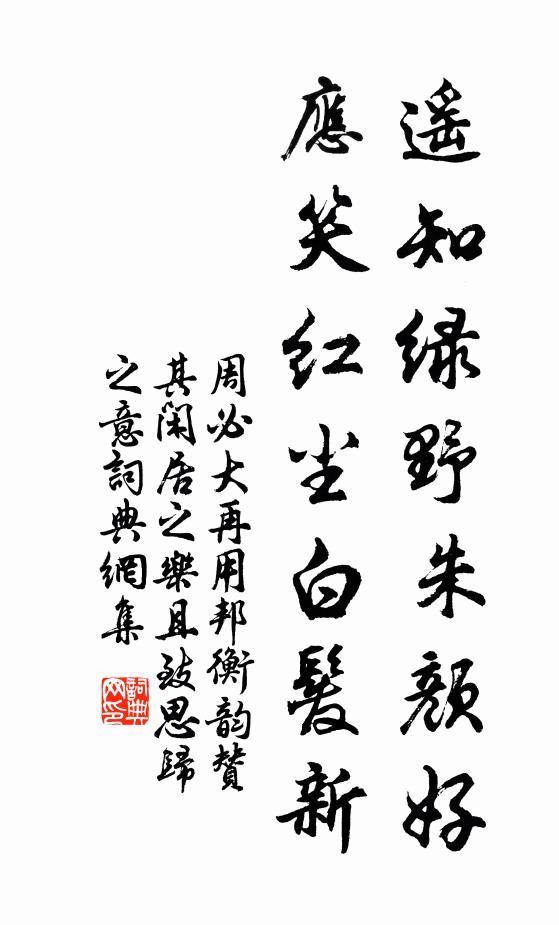 遥知绿野朱颜好
應笑紅尘白髮新
周必大再用邦衡韵賛
其闲居之樂且致思歸
之意詞典網集
詞典网印